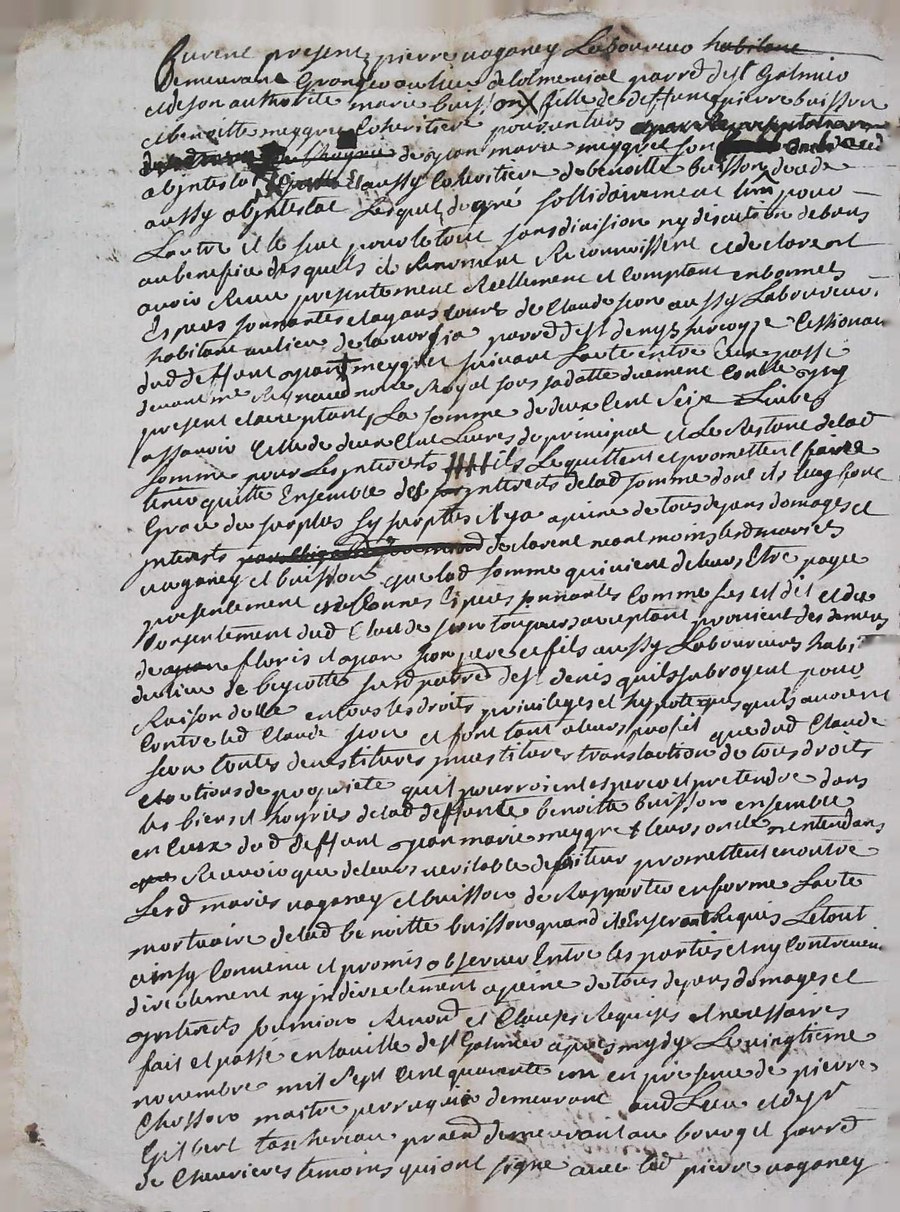 Furent present pierre vaganey Laboureur habitant
demeurant Granger au lieu de parred de st Galmier
et de son authorité marie buisson X fille de deffunt pierre buisson
et benoitte meygret coheritiere pour un tiers
de jean marie meygret son
abjntestat et aussy coheritiere de benoitte buisson
aussy abjntestat Lesquels de gré sollidairement Lun pour
Lautre et le seul pour le tout sans division ny discution de biens
au benefice desquels ils Renoncent Reconnoissent et declarent
avoir Receu presentement Reellement et Comptant en bonnes
Especes sonnantes et ayant cours de Claude jean aussy Laboureur
habitant au lieu de parred de st denys
dud deffunt jean meygret suivant Lacte entre Eux passé
devant me Reynaud notre Royal sous sa datte duement Controlé
present et acceptant, La somme de deux Cent Seize Livres
assavoir Celle de deux Cent Livres de principal et Le Restant de lad
somme pour Les jnterests ils Le quittent et promettent faire
tenir quitte Ensemble des jnterests de lad somme dont ils luy font
Grace du surplus sy surplus il y a a peine de tous depans domages et
jnterests declarent neant moins lesd mariés
vaganey et buisson que lad somme qui vient de leurs Etre payée
presentement en bonnes Especes sonnantes comme sus est dit et du
Consentement dud Claude jean toujours acceptant provient des deniers
de floris et jean son pere et fils aussy Laboureurs habi
du lieu de susd parred de st denis quils subrogent pour
Raison de ce en tous les droits privileges et hypoteques quils avoient
Contre led Claude jean et font tant a leurs profit que dud Claude
jean toutes demissions translaction de tous droits
et actions de proprieté quil pourroient esperer et pretendre dans
les biens et hoyries de lad deffunte benoitte buisson ensemble
en Ceux dud deffunt jean marie meygret leurs oncle nentendans
Recevoir que de leurs veritable debiteur promettent en outre
Lesd mariés vaganey et buisson de Rapporter en forme Lacte
mortuaire de lad benoitte buisson quand ils En seront Requis Le tout
ainsy Convenu et promis observer Entre les parties et ny Contrevenir
directement ny jndirectement a peine de tous depens domages et
jnterests Renond et Clauses Requises et necessaires
fait et passé en la ville de st Galmier apres mydy Le vingtieme
novembre mil sept Cent quarente un en presence de pierre
Chosson maitre perruquier demeurant aud Lieu et de sr
Gilbert tachereau pratd demeurant au bourg et parred
de Chevrieres temoins qui ont signé avec led pierre vaganey